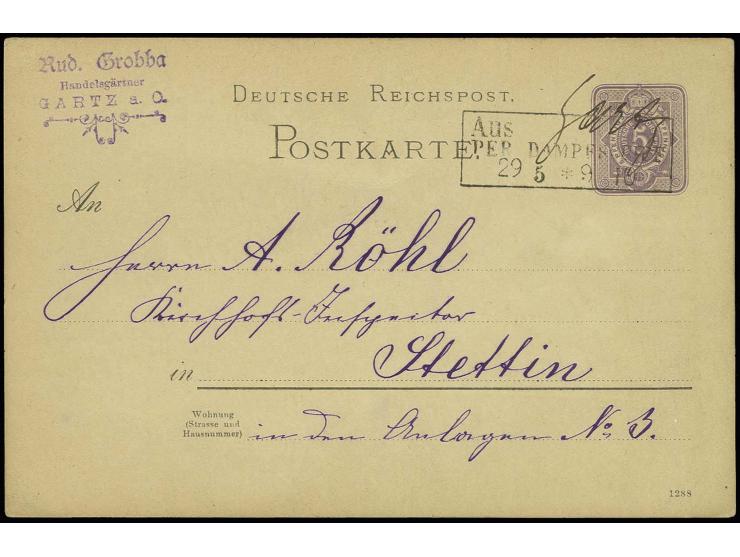 Rud. Grobba
Handelsgärtner
GARTZ a. O.
DEUTSCHE REICHSPOST.
POSTKARTE.
Aus Gartz
PER DAMPF
29 5 * 9 10
5
An
Herrn A. Röhl
Kirchhofs-Inspector
in Stettin
Wohnung
(Strasse und
Hausnummer)
in den Anlagen No 3.
1288